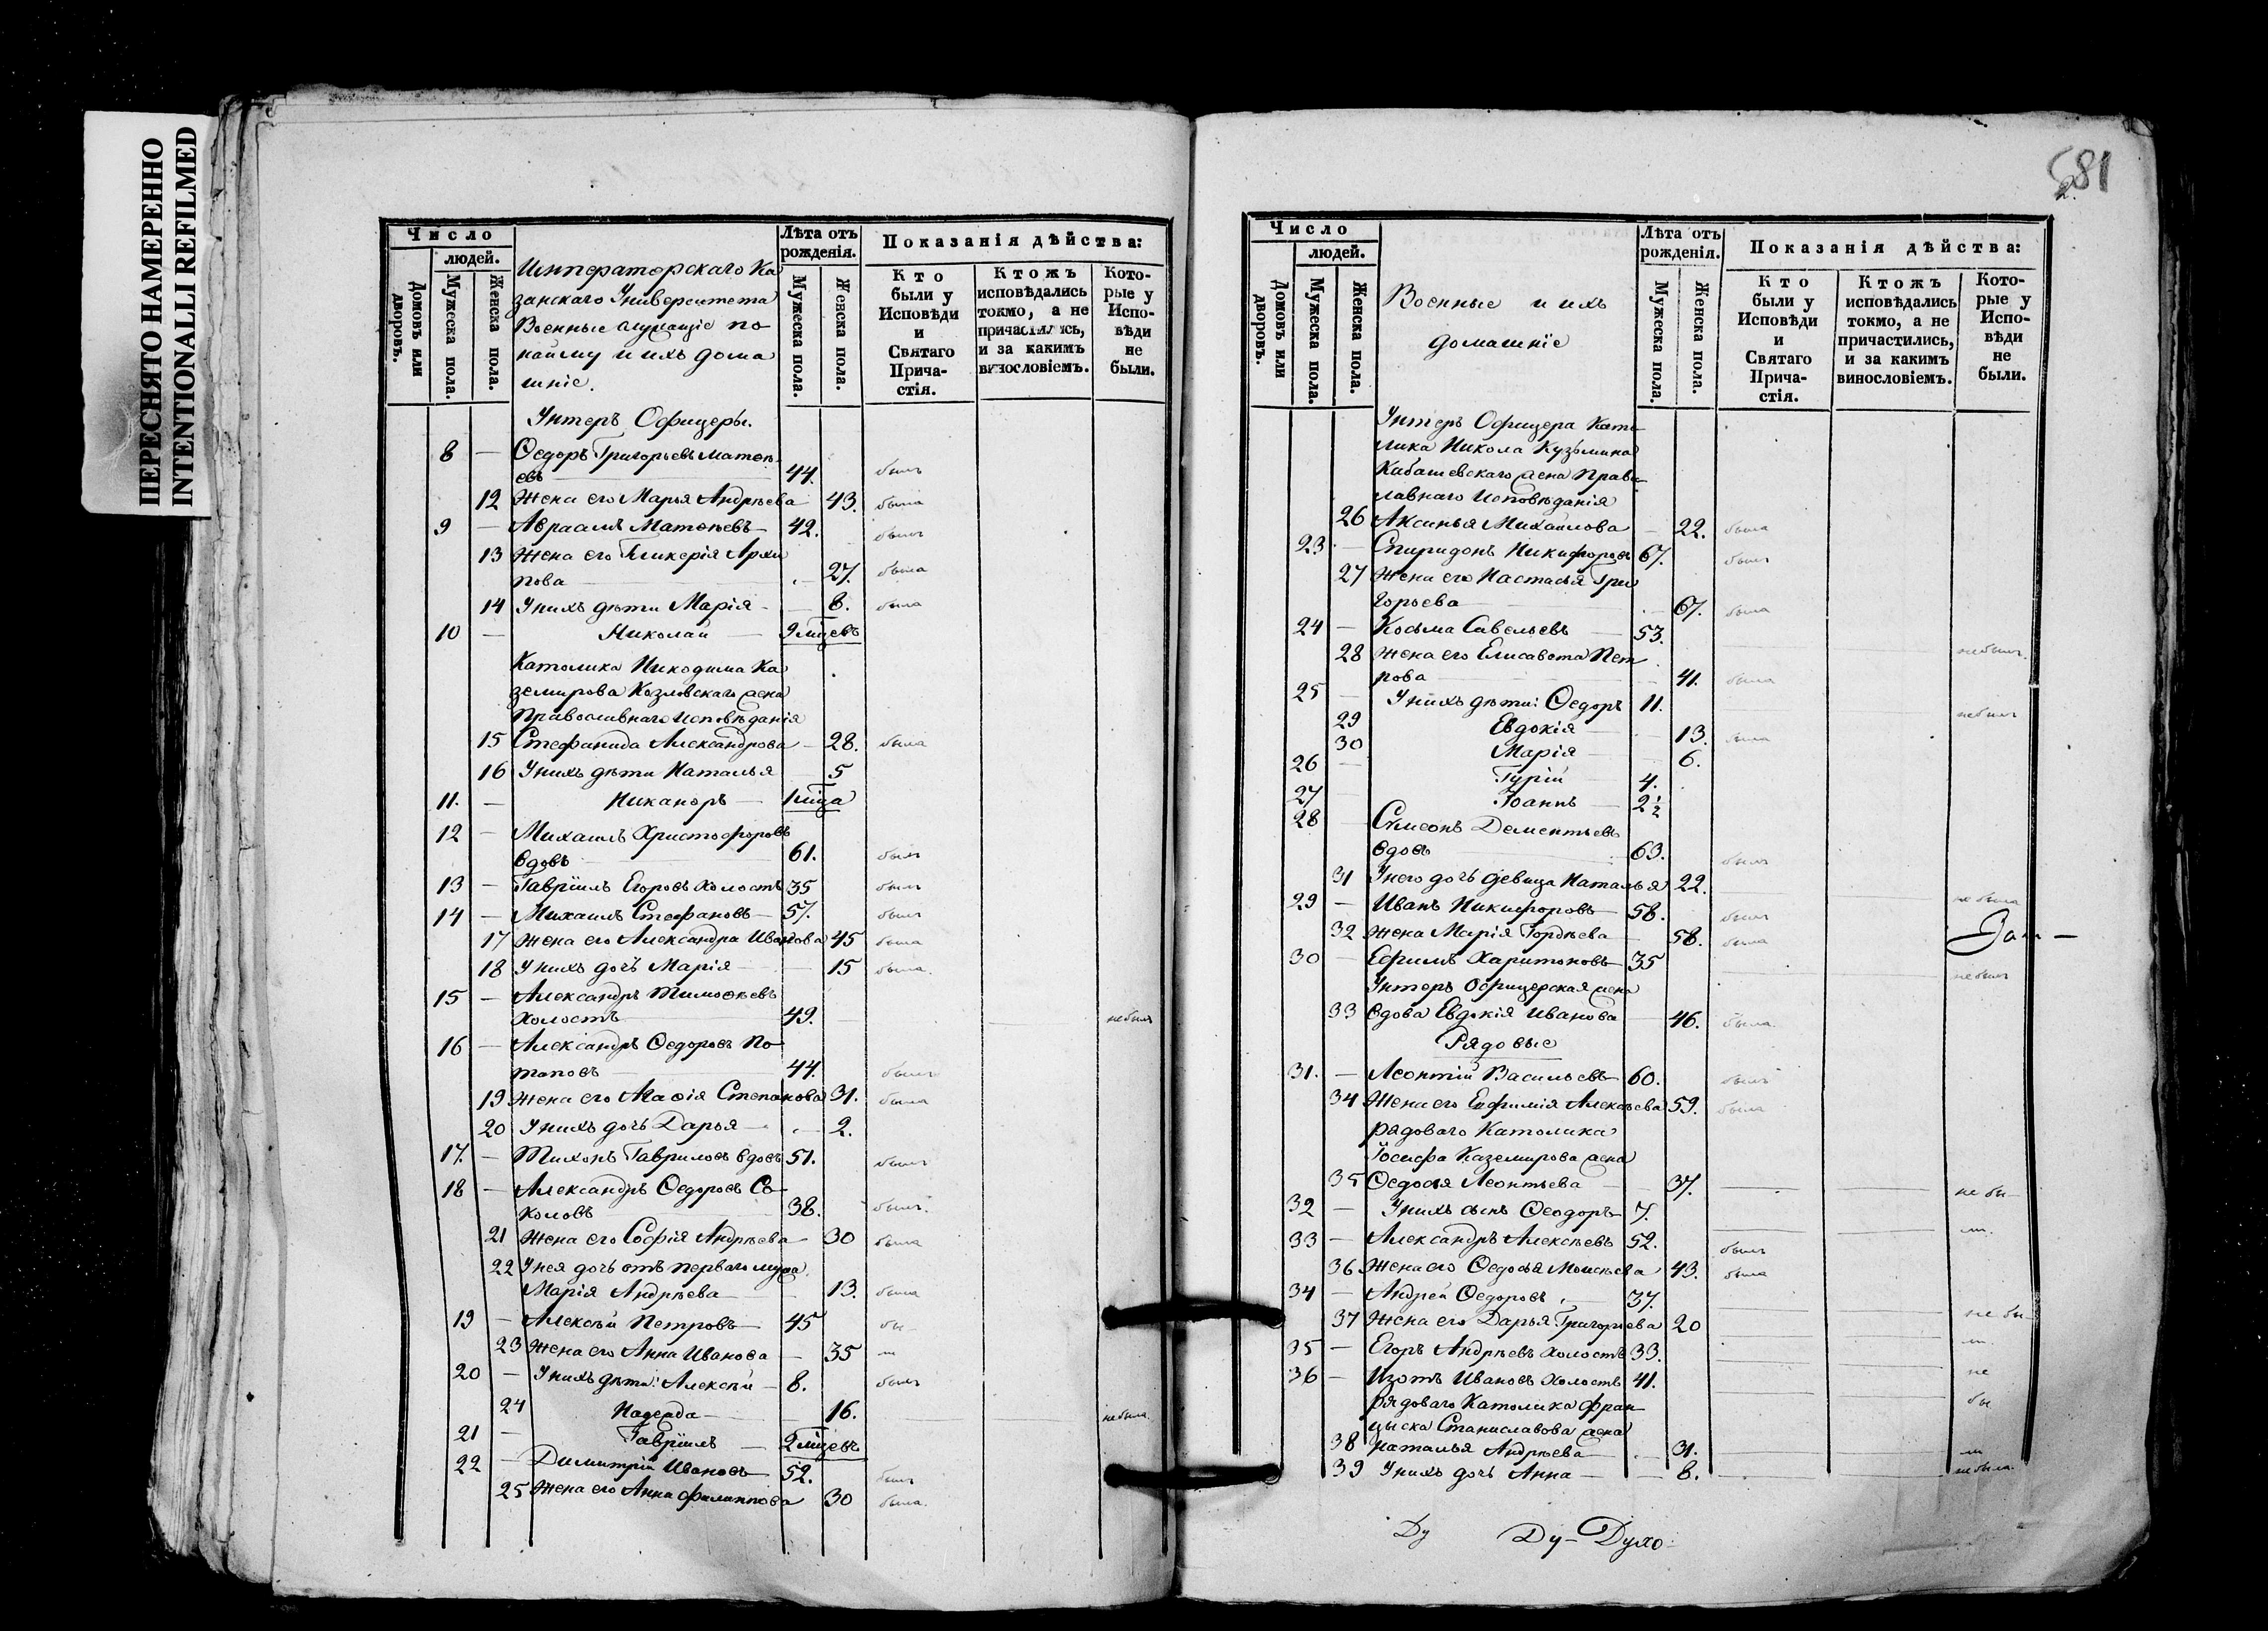 ПЕРЕСНЯТО НАМЕРЕННО
INTENTIONALLI REFILMED
Число
людей.
Домовъ или дворовъ.
Мужеска пола.
Женска пола.
Императорскаго Ка
занскаго Университета
Военные служащіе по
найму и ихъ дома
шніе.
Лѣта отъ рожденія.
Мужеска пола.
Женска пола.
Показанія дѣйства:
Кто были у Исповѣди и Святаго Причастія.
Ктожъ исповѣдались токмо, а не причастились, и за какимъ винословіемъ.
Которые у Исповѣди не были.
Унтеръ Офицеры.
8 — Ѳедоръ Григорьевъ Матвѣ-
евъ 44. былъ
12 Жена его Марья Андрѣева 43. была
9 — Авраамъ Матвѣевъ 42. былъ
13 Жена его Гликерія Архи
пова 27. была
14 У нихъ дѣти Марія 8. была
10 — Николай 9 мѣцевъ
Католика Никодима Ка
земирова Козловскаго жена
Православнаго исповѣданія
15 Стефанида Александрова 28. была
16 У нихъ дѣти Наталья 5
11. — Никаноръ 1 мѣца
12 — Михаилъ Христофоровъ
вдовъ 61. былъ
13 — Гавріилъ Егоровъ холостъ 35 былъ
14 — Михаилъ Стефановъ 57. былъ
17 Жена его Александра Иванова 45 была
18 У нихъ дочь Марія 15 была.
15 — Александръ Тимоѳѣевъ
холостъ 49. небылъ
16 — Александръ Ѳедоровъ По
таповъ 44. былъ
19 Жена его Агаѳія Степанова 31. была
20 У нихъ дочь Дарья 2.
17. — Тихонъ Гавриловъ вдовъ 51. былъ
18 — Александръ Ѳедоровъ Со
коловъ 38. былъ.
21 Жена его Софія Андрѣева 30 была
22 У нея дочь отъ перваго мужа
Марія Андрѣева 13. была
19 — Алексѣй Петровъ 45 бы
23 Жена его Анна Иванова 35
20 — У нихъ дѣти: Алексѣй 8. былъ
24 Надежда 16. небыла.
21 — Гавріилъ 2 мѣцевъ
22 — Димитрій Ивановъ 52. былъ
25 Жена его Анна Филиппова 30 была.
581
2.
Число
людей.
Домовъ или дворовъ.
Мужеска пола.
Женска пола.
Военные и ихъ
домашніе
Лѣта отъ рожденія.
Мужеска пола.
Женска пола.
Показанія дѣйства:
Кто были у Исповѣди и Святаго Причастія.
Ктожъ исповѣдались токмо, а не причастились, и за какимъ винословіемъ.
Которые у Исповѣди не были.
Унтеръ Офицера Като
лика Никола Кузьмина
Кабашевскаго жена Право
славнаго исповѣданія
26 Аксинья Михайлова 22. была
23 — Спиридонъ Никифоровъ 67. былъ
27 Жена его Настасья Гри
горьева 67. была
24 — Косьма Савельевъ 53. небылъ.
28 Жена его Елисавета Пет
рова 41. была
25 — У нихъ дѣти: Ѳедоръ 11. небылъ
29 Евдокія 13. была
30 Марія 6.
26 — Гурій 4.
27 — Іоаннъ 2 1/2
28 Сѵмеонъ Дементьевъ
вдовъ 63. былъ
31 У него дочь девица Наталья 22. не была
29 — Иванъ Никифоровъ 58. былъ
32 Жена Марія Гордѣева 58. была
30 — Ефимъ Харитоновъ 35 небылъ
Унтеръ Офицерская жена
33 вдова Евдокія Иванова 46. была.
Рядовые
31. — Леонтій Васильевъ 60. былъ
34 Жена его Евфимія Алексѣева 59. была
рядоваго Католика
Іосифа Каземирова жена
35 Ѳедосья Леонтьева 37. не бы
32 — У нихъ сынъ Ѳеодоръ 7.
33 — Александръ Алексѣевъ 52. былъ
36 Жена его Ѳедосья Моисѣева 43. была
34 — Андрей Ѳедоровъ 37. не бы
37 Жена его Дарья Григорьева 20
35 — Егоръ Андрѣевъ холостъ 33. не
36 — Изотъ Ивановъ холостъ 41. бы
рядоваго Католика Фран
цыска Станиславова жена
38 Наталья Андрѣева 31.
39 У нихъ дочь Анна 8. небыла.
Ду Ду- Духо